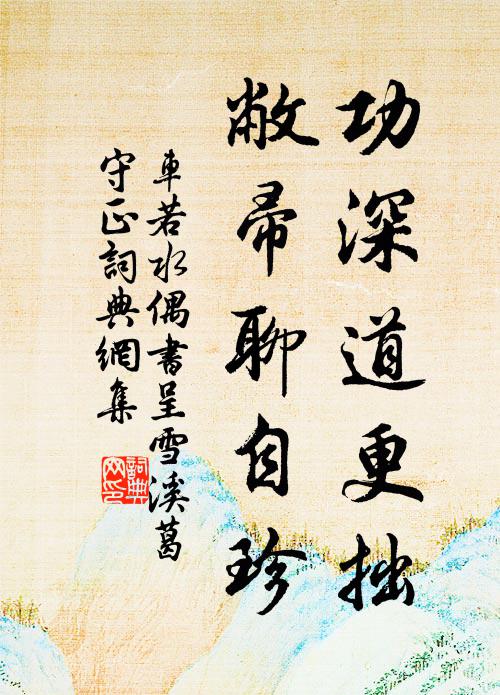 功深道更拙
敝帚聊自珍
車若水偶書呈雪溪葛
守正詞典網集
詞典
网印